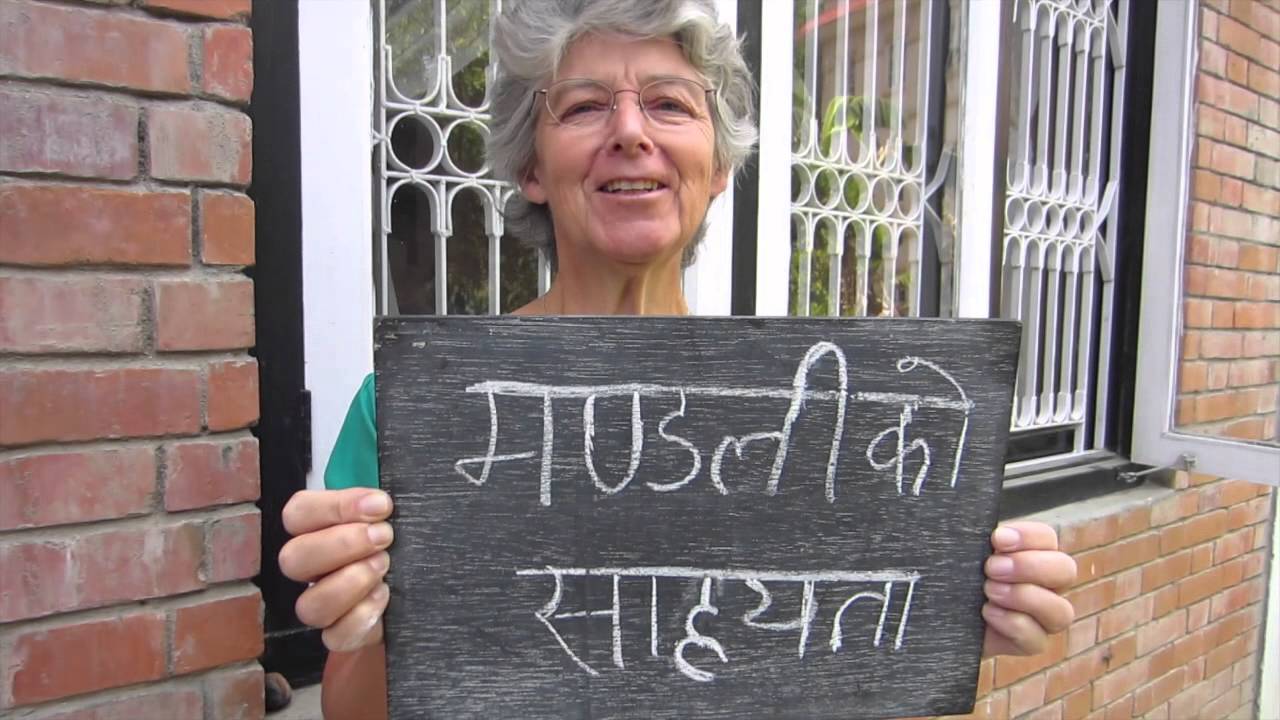 मण्डली को
साहयता